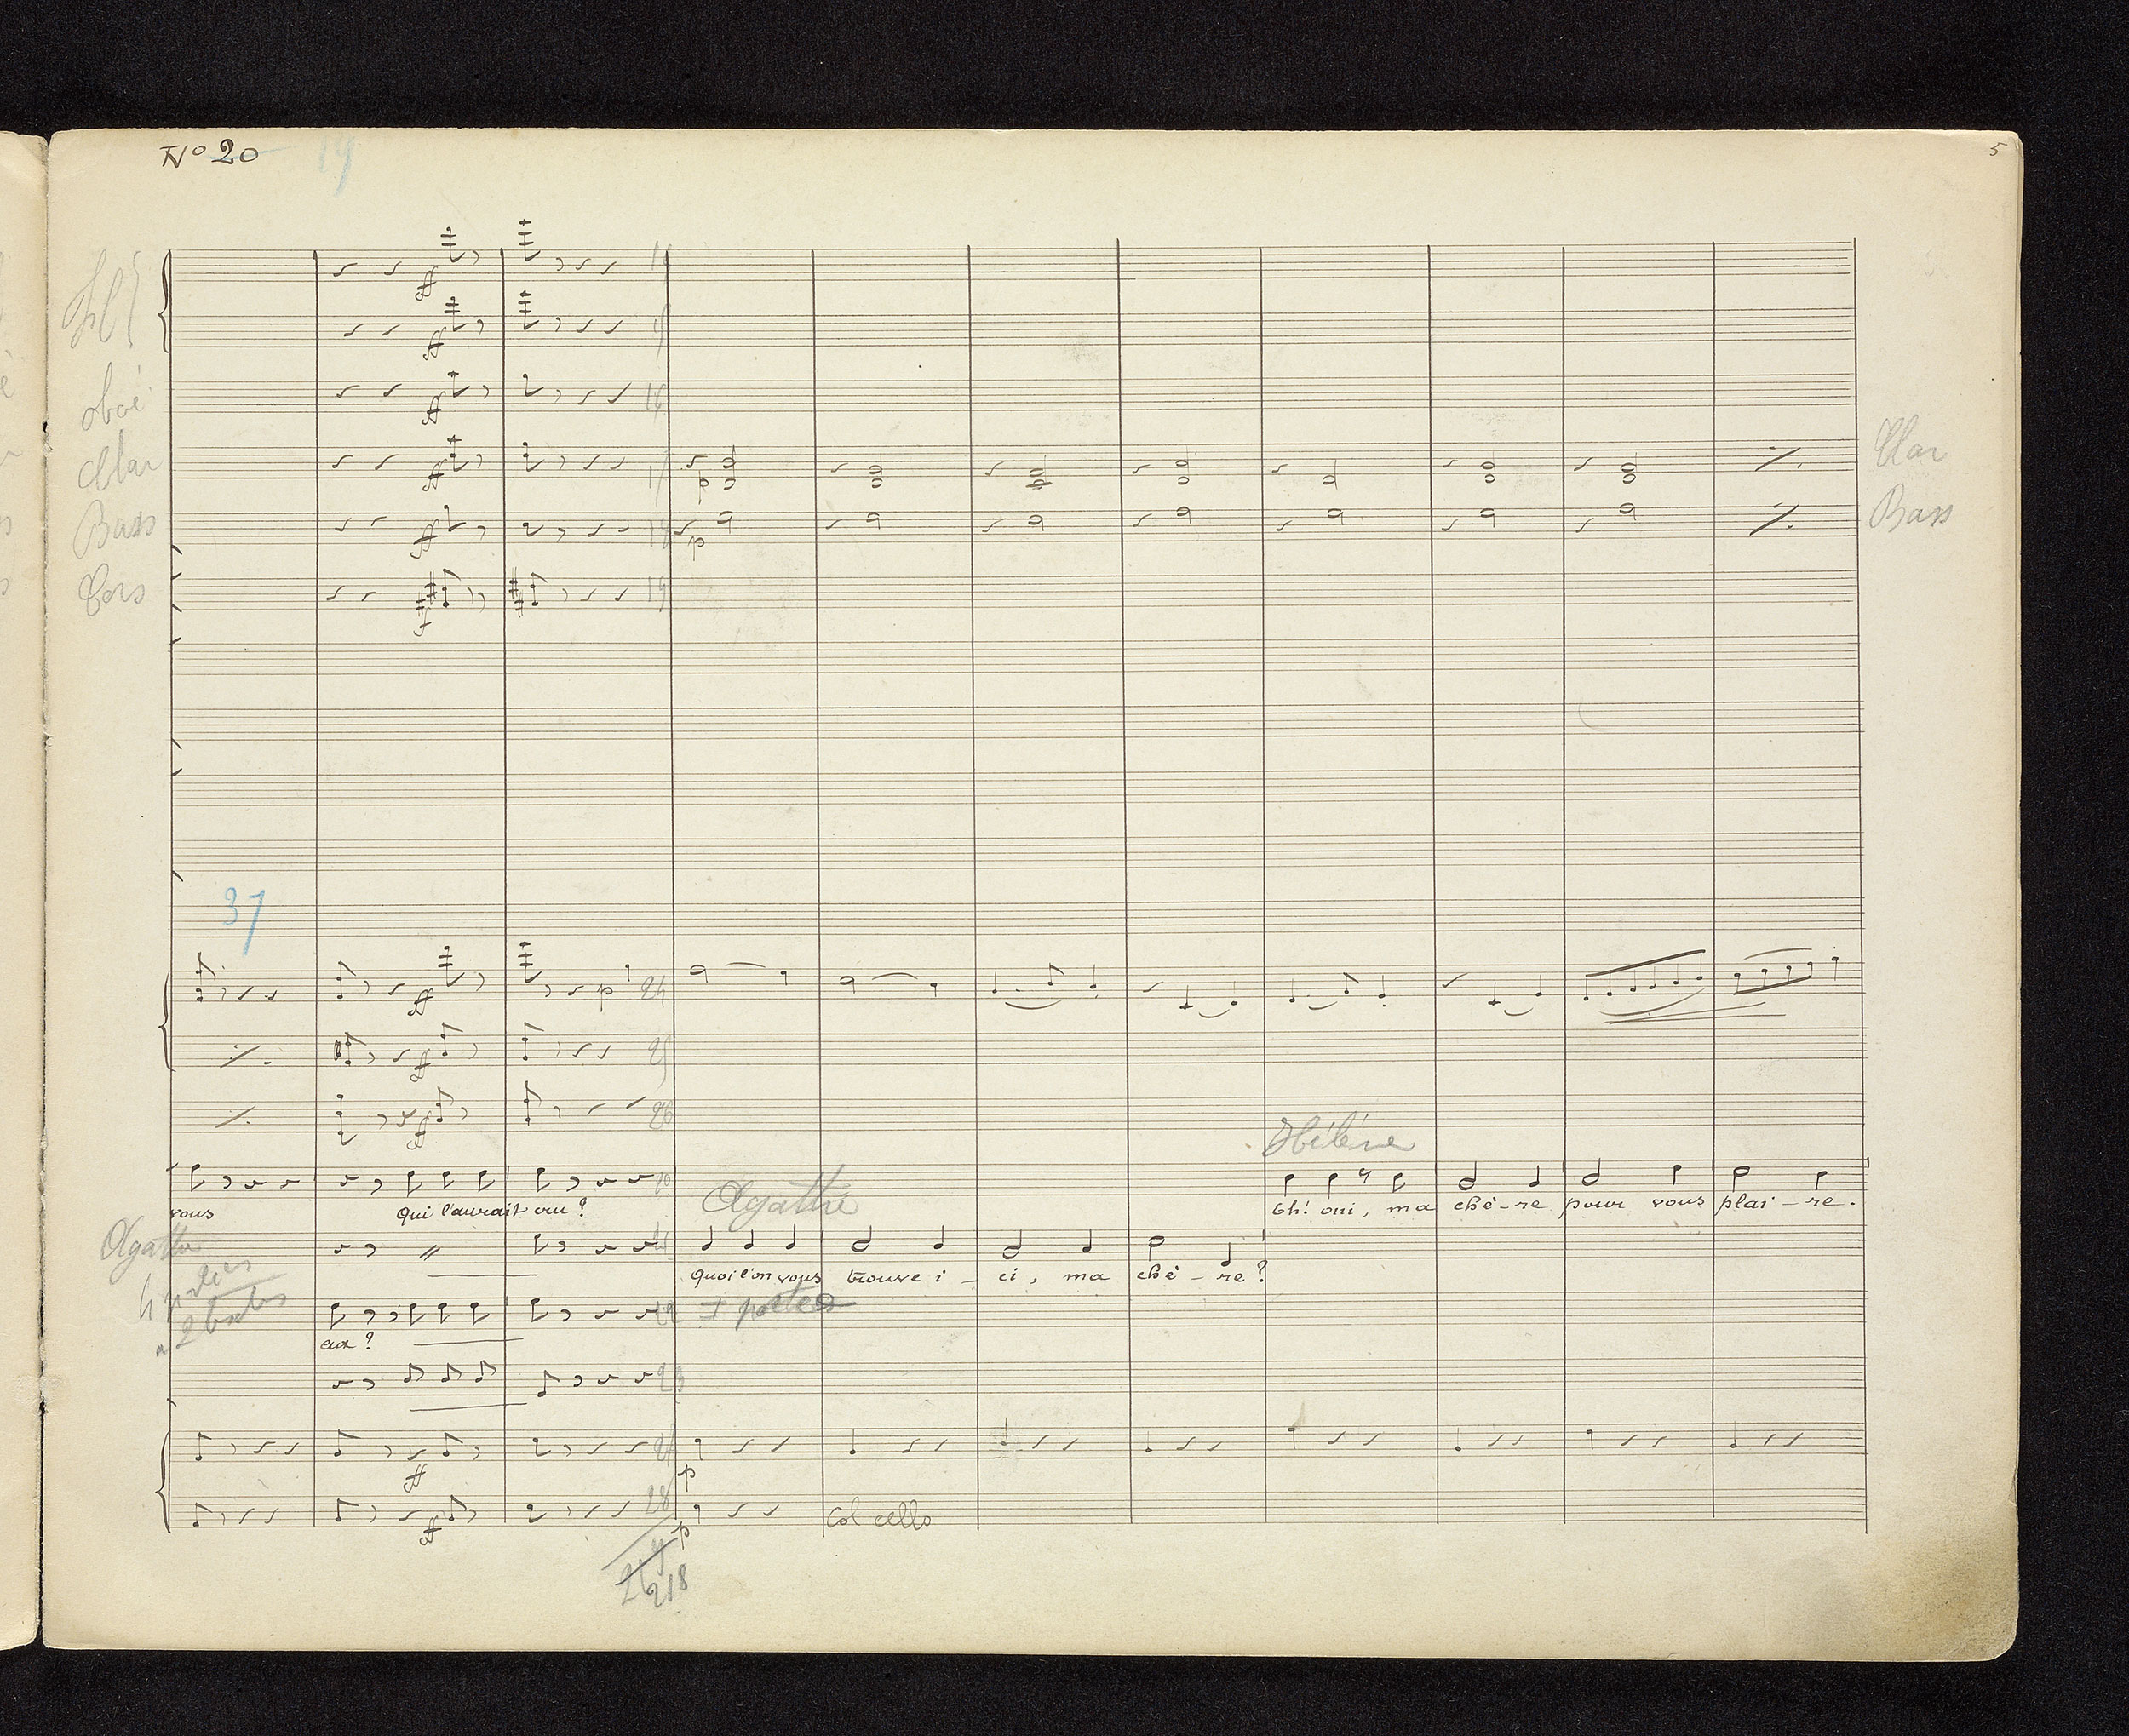 Nº 20 19
5
fl
oboé
Clar
Clar
Bass
Bass
Cors
37
Hélène
vous qui l'aurait cru ?
Agathe
Eh! oui, ma chè-re pour vous plai-re.
Agathe
quoi l'on vous trouve i-ci, ma chè-re?
eux ?
Col cello
218